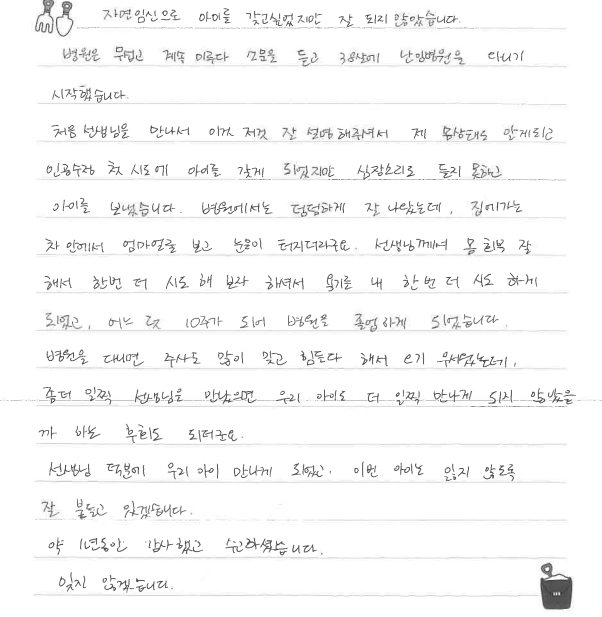 자연임신으로 아이를 갖고싶었지만 잘 되지 않았습니다.
병원은 무섭고 계속 미루다 소문을 듣고 38살에 난임병원을 다니기
시작했습니다.
처음 선생님을 만나서 이것 저것 잘 설명해주셔서 제 몸상태도 알게되고
인공수정 첫 시도에 아이를 갖게 되었지만 심장소리도 듣지 못하고
아이를 보냈습니다. 병원에서는 덤덤하게 잘 나왔는데, 집에가는
차 안에서 엄마얼굴 보고 눈물이 터지더라구요. 선생님께서 몸 회복 잘
해서 한번 더 시도 해 보자 하셔서 용기를 내 한 번 더 시도 하게
되었고, 어느 덧 10주가 되어 병원을 졸업하게 되었습니다.
병원을 다니면 주사도 많이 맞고 힘들다 해서 오기 무서웠는데,
좀더 일찍 선생님을 만났으면 우리 아이도 더 일찍 만나게 되지 않았을
까 하는 후회도 되더군요.
선생님 덕분에 우리 아이 만나게 되었고, 이번 아이는 잃지 않도록
잘 붙들고 있겠습니다.
약 1년동안 감사했고 수고하셨습니다.
잊지 않겠습니다.